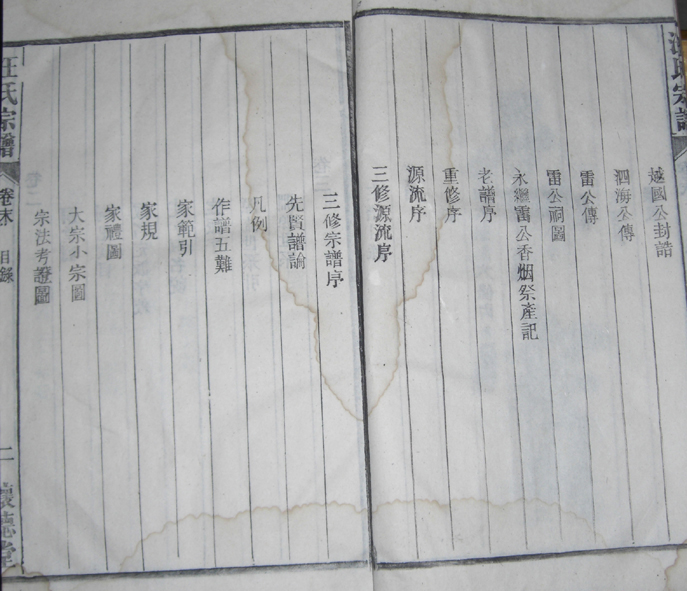 越國公封誥
泗海公傳
雷公傳
雷公嗣圖
永繼雷公香烟祭產記
老譜序
重修序
源流序
三修源流序
三修宗譜序
先賢譜論
凡例
作譜五難
家範引
家規
家禮圖
大宗小宗圖
宗法考證圖
汪氏宗譜
卷末 目錄
二